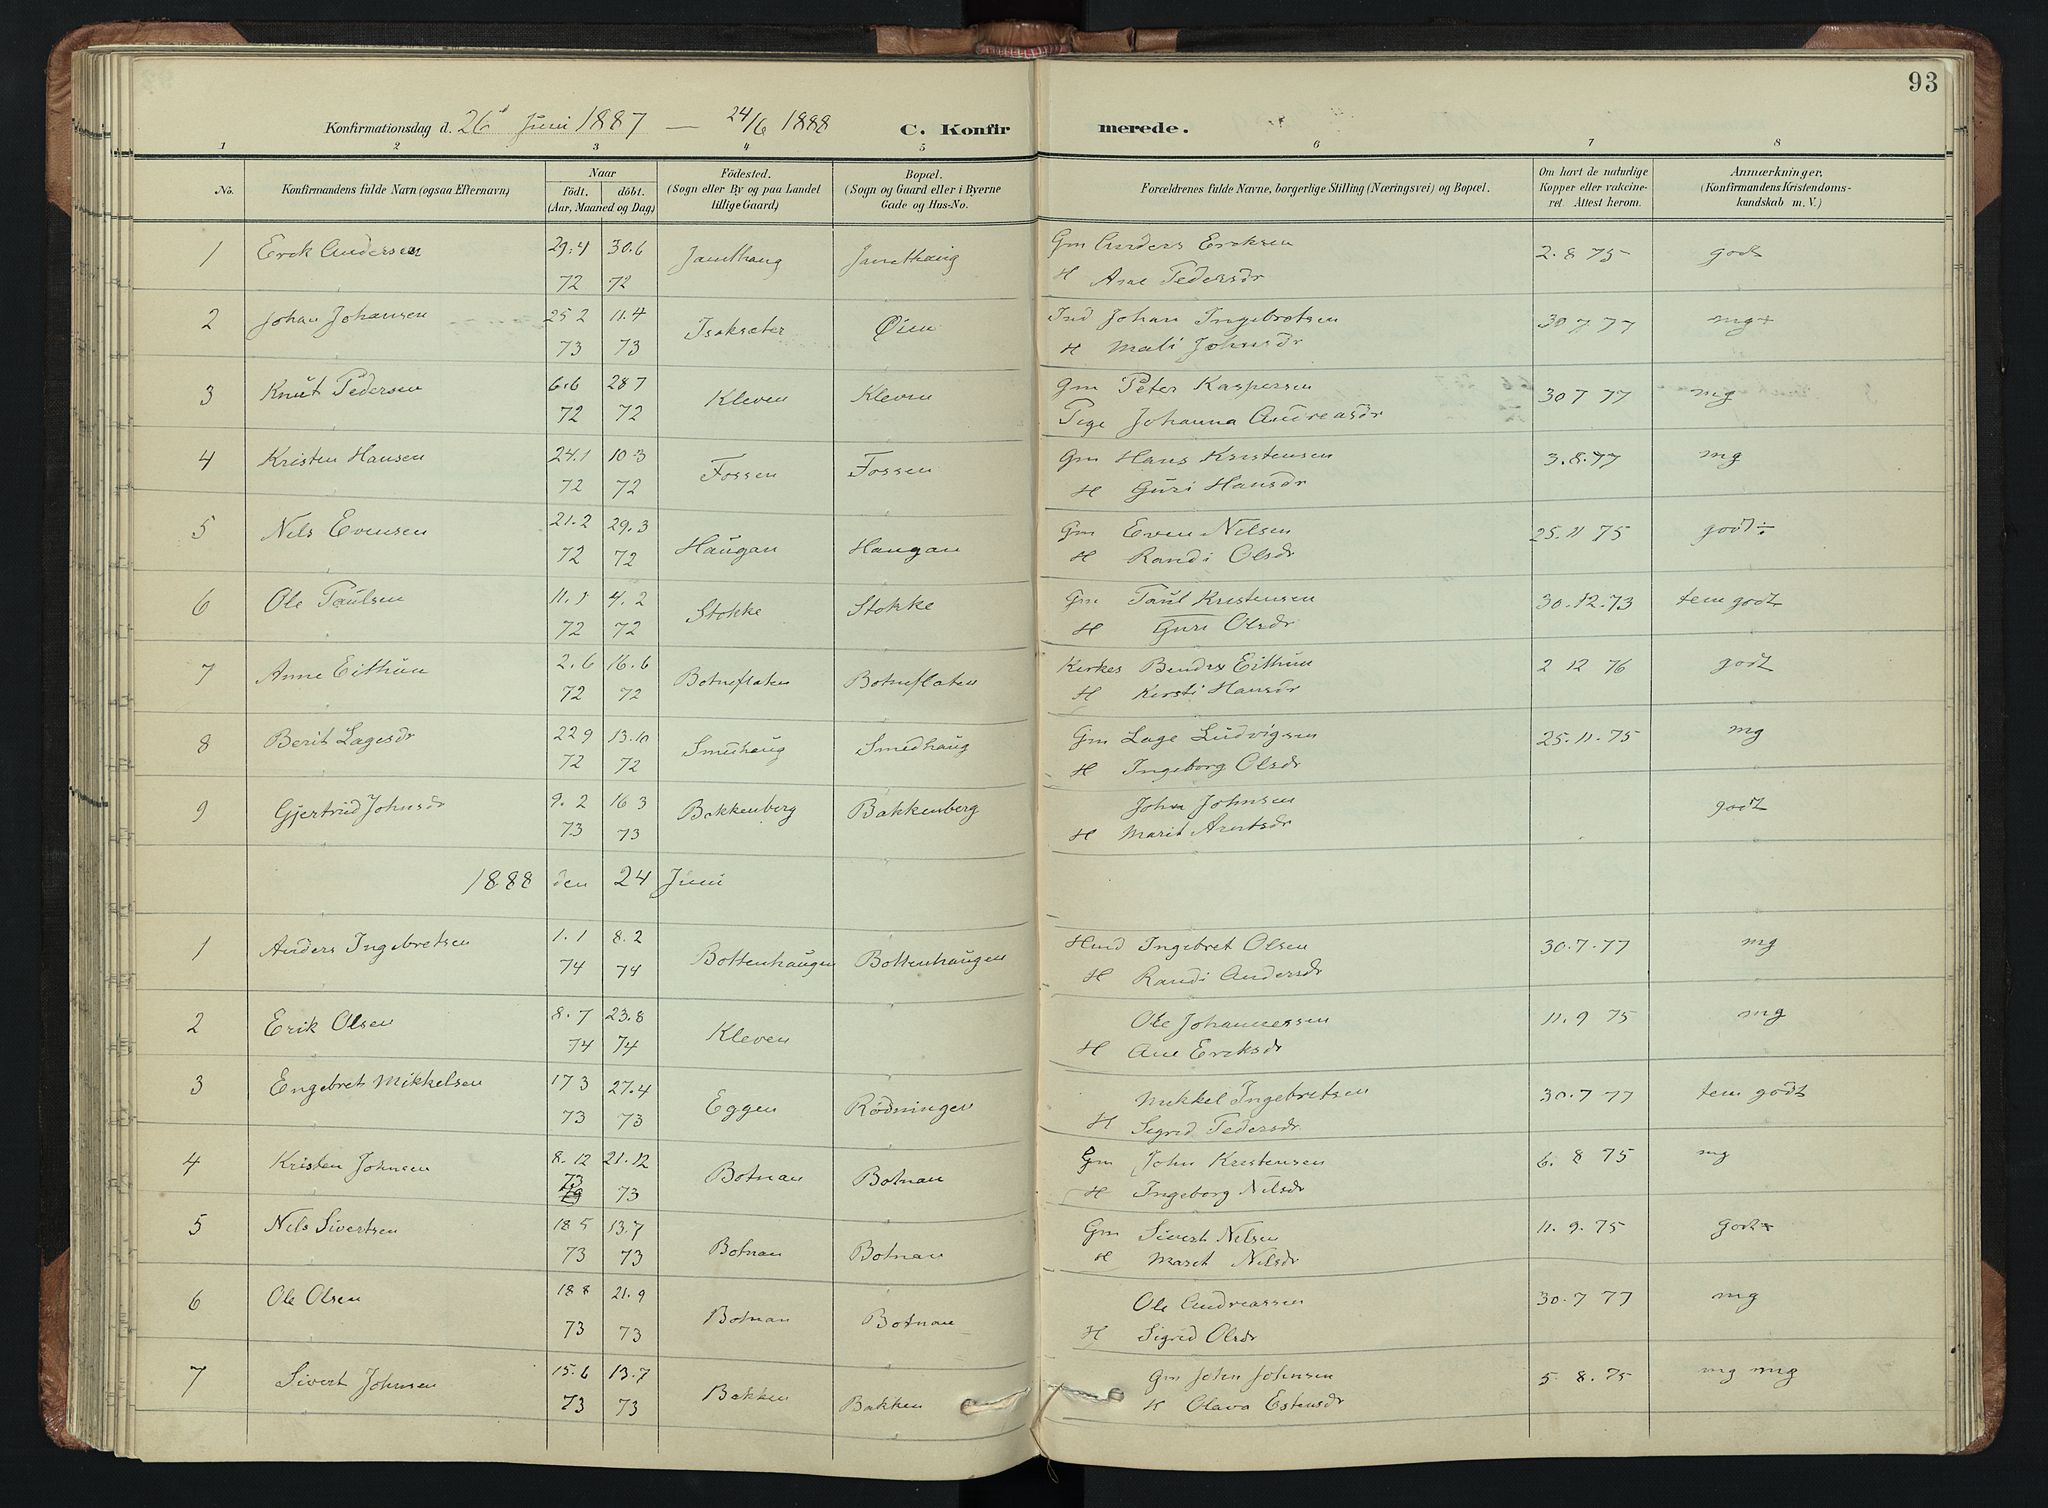 93
Konfirmationsdag d. 26 Juni 1887 — 24/6 1888 C. Konfirmerede.
1 2 3 4 5 6 7 8
No. Konfirmandens fulde Navn (ogsaa Efternavn) Naar født. døbt. (Aar, Maaned og Dag) Födested. (Sogn eller By og paa Landet tillige Gaard) Bopæl. (Sogn og Gaard eller i Byerne Gade og Hus-No. Forældrenes fulde Navne, borgerlige Stilling (Næringsvei) og Bopæl. Om havt de naturlige Kopper eller vakcineret. Attest herom. Anmærkninger, (Konfirmandens Kristendomskundskab m. V.)
1 Erik Andersen 29.4 30.6 Gm Anders Eriksen 2.8 75 godt
72 72 H Ane Pedersdr
2 Johan Johansen 25 2 11.4 Isaksæter Øien Ind Johan Ingebretsen 30 7 77 mg÷
73 73 H Mali Johnsdr
3 Knut Pedersen 6.6 28 7 Kleven Kleven Gm Peter Kaspersen 30 7 77 mg
72 72 Pige Johanna Andreasdr
4 Kristen Hansen 24.1 10 3 Fossen Fossen Gm Hans Kristensen 3.8.77 mg
72 72 H Guri Hansdr
5 Nils Evensen 21.2 29.3 Haugan Haugan Gm Even Nilsen 25.11 75 godt÷
72 72 H Randi Olsdr
6 Ole Paulsen 11.1 4.2 Stokke Stokke Gm Paul Kristensen 30.12.73 tem godt
72 72 H Guri Olsdr
7 Anne Eithun 2.6 16.6 Botneflaten Botneflaten Kirkes Bendix Eithun 2 12 76 godt
72 72 H Kirsti Hansdr
8 Berit Lagesdr 22 9 13.10 Smedhaug Smedhaug Gm Lage Ludvigsen 25.11.75 mg
72 72 H Ingeborg Olsdr
9 Gjertrud Johnsdr 9.2 16 3 Bakkenberg Bakkenberg John Johnsen godt
73 73 H Marit Arntsdr
1888 den 24 Juni
1 Anders Ingebretsen 1.1 8.2 Bottenhaugen Bottenhaugen Hmd Ingebret Olsen 30.7.77 mg
74 74 H Randi Andersdr
2 Erik Olsen 8.7 23.8 Kleven Ole Johannessen 11.9 75 mg
74 74 H Ane Eriksdr
3 Engebret Mikkelsen 17 3 27.4 Eggen Rødningen Mikkel Ingebretsen 30.7 77 tem godt
73 73 H Sigrid Pedersdr
4 Kristen Johnsen 8.12 21.12 Botnan Botnan Gm John Kristensen 6. 8 75 mg
73 73 H Ingeborg Nilsdr
5 Nils Sivertsen 18 5 13.7 Botnan Botnan Gm Sivert Nilsen 11.9.75 godt
73 73 H Marit Nilsdr
6 Ole Olsen 18 8 21.9 Botnan Botnan Ole Andreassen 30.7 77 mg
73 73 H Sigrid Olsdr
7 Sivert Johnsen 15.6 13.7 Bakken Bakken Gm John Johnsen 5.8.75 mg mg
73 73 H Olava Estensdr